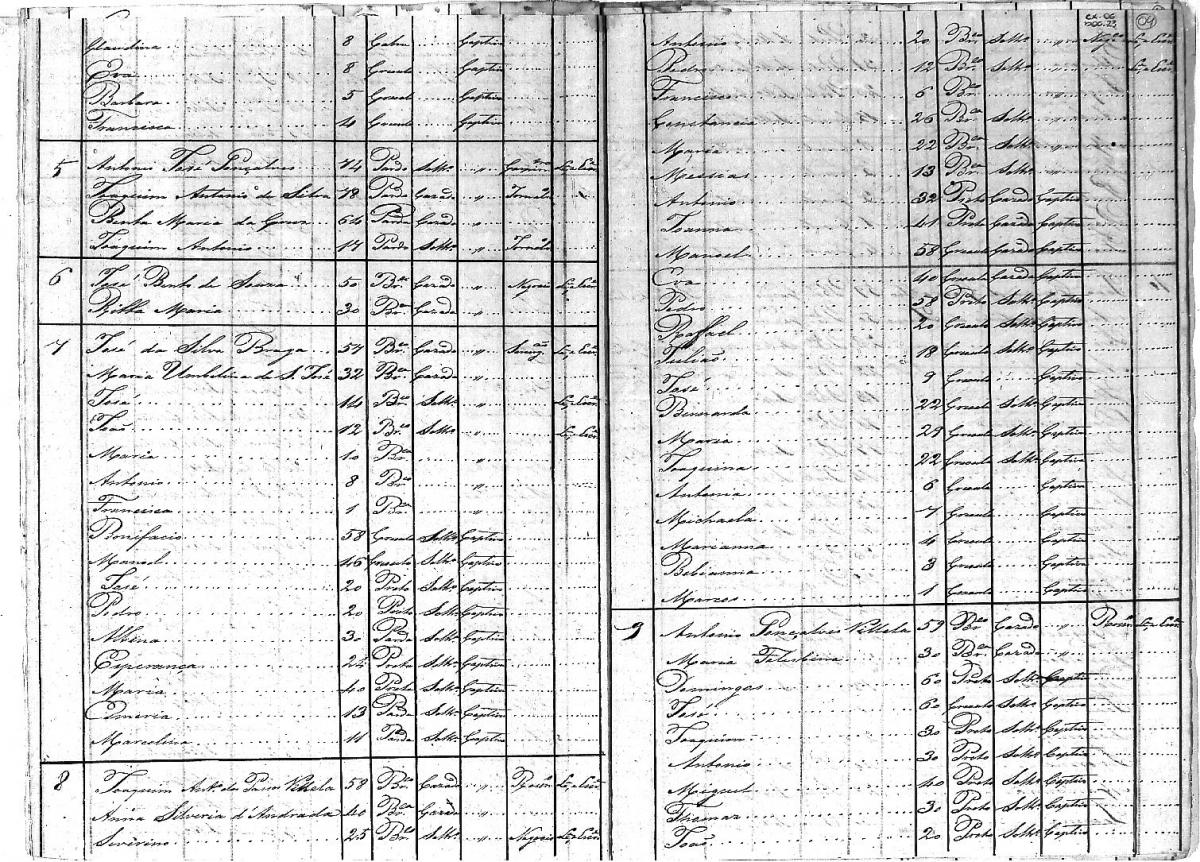 Claudina 8 Cabra Captiva
Eva 8 Crioula Captiva
Barbara 5 Crioula Captiva
Francisca 4 Crioula Captiva
5 Antonio José Gonçalves 74 Pardo Soltro
Joaquim Antonio da Silva 78 Pardo Cazado "
Benta Maria da 64 Parda Cazada "
Joaquim Antonio 17 Pardo Soltro "
6 José Bento de Souza 50 Brco Cazado " Negocio
Ritta Maria 30 Brca Cazada "
7 José da Silva Braga 57 Brco Cazado "
Maria Umbelina de S. José 32 Brca Cazada "
José 14 Brco Soltro "
João 12 Brco Soltro
Maria 10 Brca "
Antonio 8 Brco "
Francisca 1 Brca "
Bonifacio 58 Crioulo Soltro Captivo
Manoel 46 Crioulo Soltro Captivo
José 20 Preto Soltro Captivo
Pedro 20 Preto Soltro Captivo
Albina 30 Parda Soltra Captiva
Esperança 25 Preta Soltra Captiva
Maria 40 Preta Soltra Captiva
13 Parda Soltra Captiva
Marcolina 11 Parda Soltra Captiva
8 Joaquim Anto de Paiva Villela 58 Brco Cazado
Anna Silveria d'Andrada 40 Brca Cazada "
Siverino 25 Brco Soltro " Negocio
cx. 06
doc. 23
04
Antonio 20 Brco Soltro "
Pedro 12 Brco Soltro "
Francisco 6 Brco "
Constancia 26 Brca Soltra "
Maria 22 Brca Soltra "
Messias 13 Brca Soltra "
Antonio 32 Preto Cazado Captivo
Joanna 41 Preta Cazada Captiva
Manoel 58 Crioulo Cazado Captivo
Eva 40 Crioula Cazada Captiva
Pedro 58 Preto Soltro Captivo
Raffael 20 Crioulo Soltro Captivo
Julião 18 Crioulo Soltro Captivo
José 9 Crioulo Captivo
Bernarda 22 Crioula Soltra Captiva
Maria 29 Crioula Soltra Captiva
Joaquina 22 Crioula Soltra Captiva
Antonia 6 Crioula Captiva
Michaela 7 Crioula Captiva
Marianna 4 Crioula Captiva
Bibianna 3 Crioula Captiva
Marcos 1 Crioulo Captivo
9 Antonio Gonçalves Villela 59 Brco Cazado "
Maria Felisbina 30 Brca Cazada "
Domingos 60 Preto Soltro Captivo
José 60 Crioulo Soltro Captivo
Joaquim 30 Preto Soltro Captivo
Antonio 30 Preto Soltro Captivo
Miguel 40 Preto Soltro Captivo
Thomaz 30 Preto Soltro Captivo
João 20 Preto Soltro Captivo